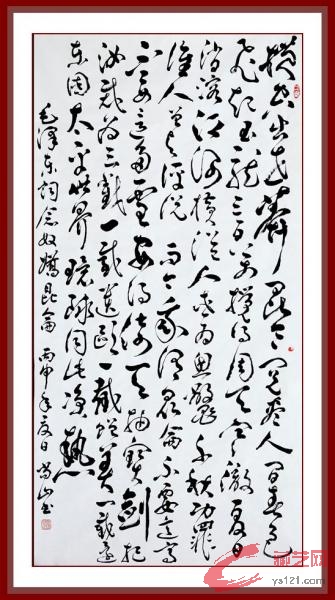 横空出世莽昆仑阅尽人间春色
飞起玉龍三百万搅得周天寒澈夏日
消溶江河横溢人或为鱼鳖千秋功罪
谁人曾与评说而今我谓昆侖不要这高
不要这多雪安得倚天抽寶劍把
汝裁为三截一截遗歐一截赠美一截还
东国太平世界環球同此凉热
毛泽东词念奴嬌昆侖 丙申年夏日 山书
藏艺网
ys121.com